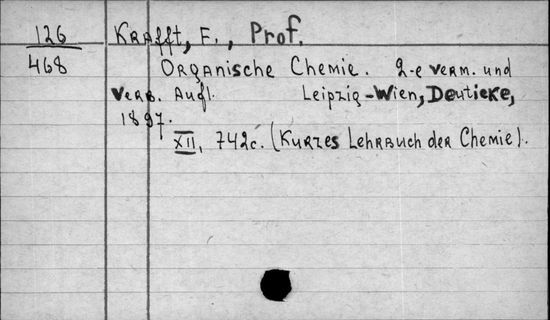 126 Krafft, F., Prof.
468 Organische Chemie. 2-e verm. und
verb. Aufl. Leipzig-Wien, Deuticke,
1897.
XII, 742c. (Kurzes Lehrbuch der Chemie).